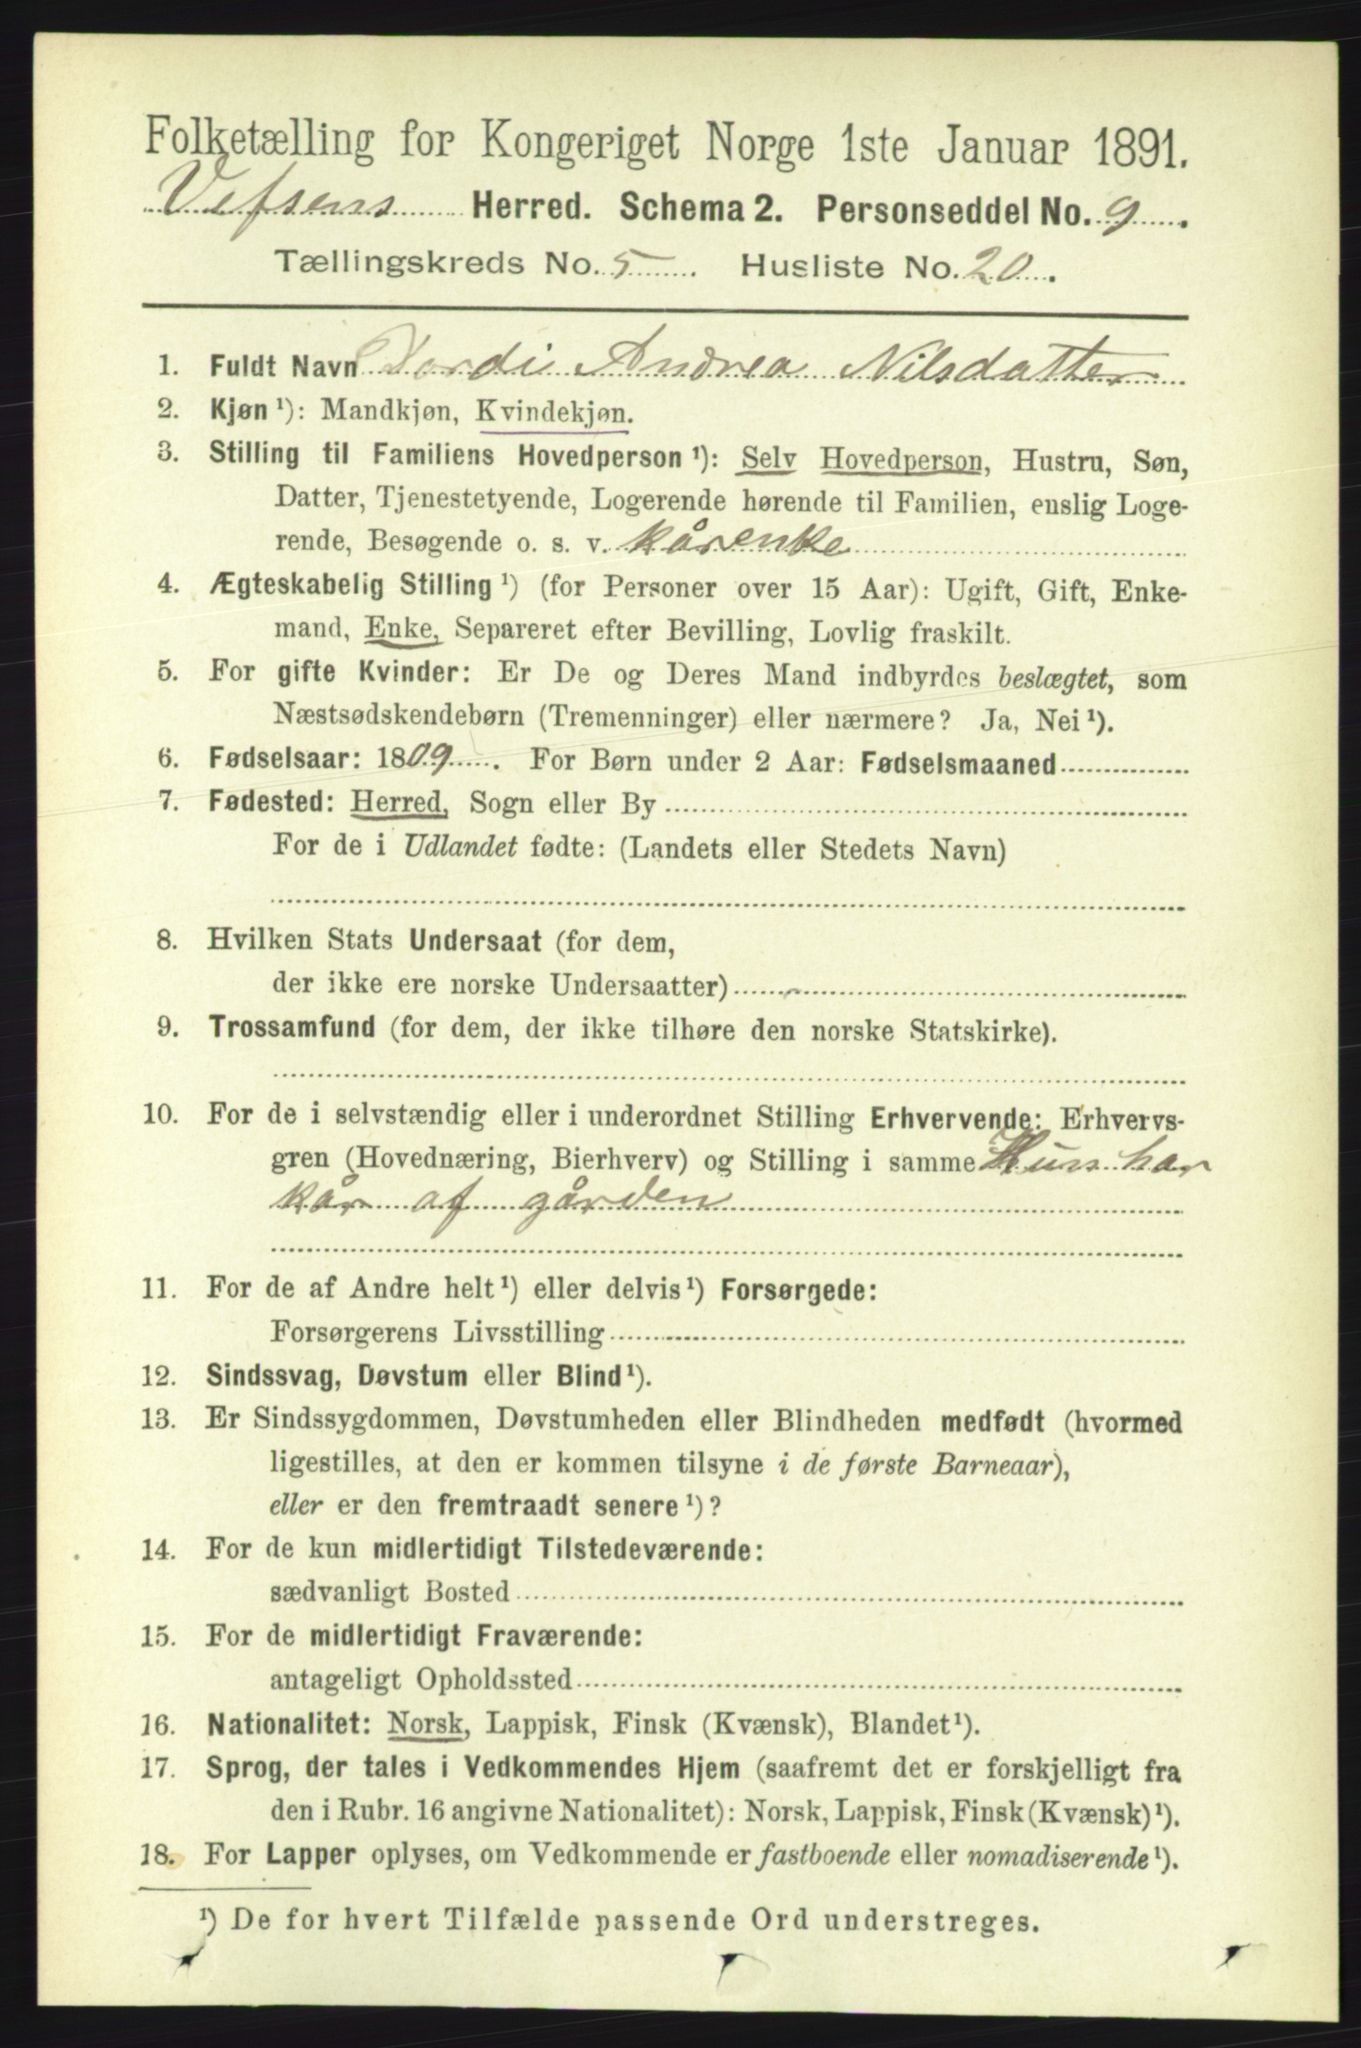 Folketælling for Kongeriget Norge 1ste Januar 1891.
Vefsens Herred. Schema 2. Personseddel No. 9.
Tællingskreds No. 5. Husliste No. 20.
1. Fuldt Navn Dordi Andrea Nilsdatter
2. Kjøn ¹): Mandkjøn, Kvindekjøn.
3. Stilling til Familiens Hovedperson ¹): Selv Hovedperson, Hustru, Søn,
Datter, Tjenestetyende, Logerende hørende til Familien, enslig Loge-
rende, Besøgende o. s. v. kårenke
4. Ægteskabelig Stilling ¹) (for Personer over 15 Aar): Ugift, Gift, Enke-
mand, Enke, Separeret efter Bevilling, Lovlig fraskilt.
5. For gifte Kvinder: Er De og Deres Mand indbyrdes beslægtet, som
Næstsødskendebørn (Tremenninger) eller nærmere? Ja, Nei ¹).
6. Fødselsaar: 1809. For Børn under 2 Aar: Fødselsmaaned
7. Fødested: Herred, Sogn eller By
For de i Udlandet fødte: (Landets eller Stedets Navn)
8. Hvilken Stats Undersaat (for dem,
der ikke ere norske Undersaatter)
9. Trossamfund (for dem, der ikke tilhøre den norske Statskirke).
10. For de i selvstændig eller i underordnet Stilling Erhvervende: Erhvervs-
gren (Hovednæring, Bierhverv) og Stilling i samme Hun har
kår af gården
11. For de af Andre helt ¹) eller delvis ¹) Forsørgede:
Forsørgerens Livsstilling
12. Sindssvag, Døvstum eller Blind ¹).
13. Er Sindssygdommen, Døvstumheden eller Blindheden medfødt (hvormed
ligestilles, at den er kommen tilsyne i de første Barneaar),
eller er den fremtraadt senere ¹)?
14. For de kun midlertidigt Tilstedeværende:
sædvanligt Bosted
15. For de midlertidigt Fraværende:
antageligt Opholdssted
16. Nationalitet: Norsk, Lappisk, Finsk (Kvænsk), Blandet ¹).
17. Sprog, der tales i Vedkommendes Hjem (saafremt det er forskjelligt fra
den i Rubr. 16 angivne Nationalitet): Norsk, Lappisk, Finsk (Kvænsk) ¹).
18. For Lapper oplyses, om Vedkommende er fastboende eller nomadiserende ¹).
¹) De for hvert Tilfælde passende Ord understreges.